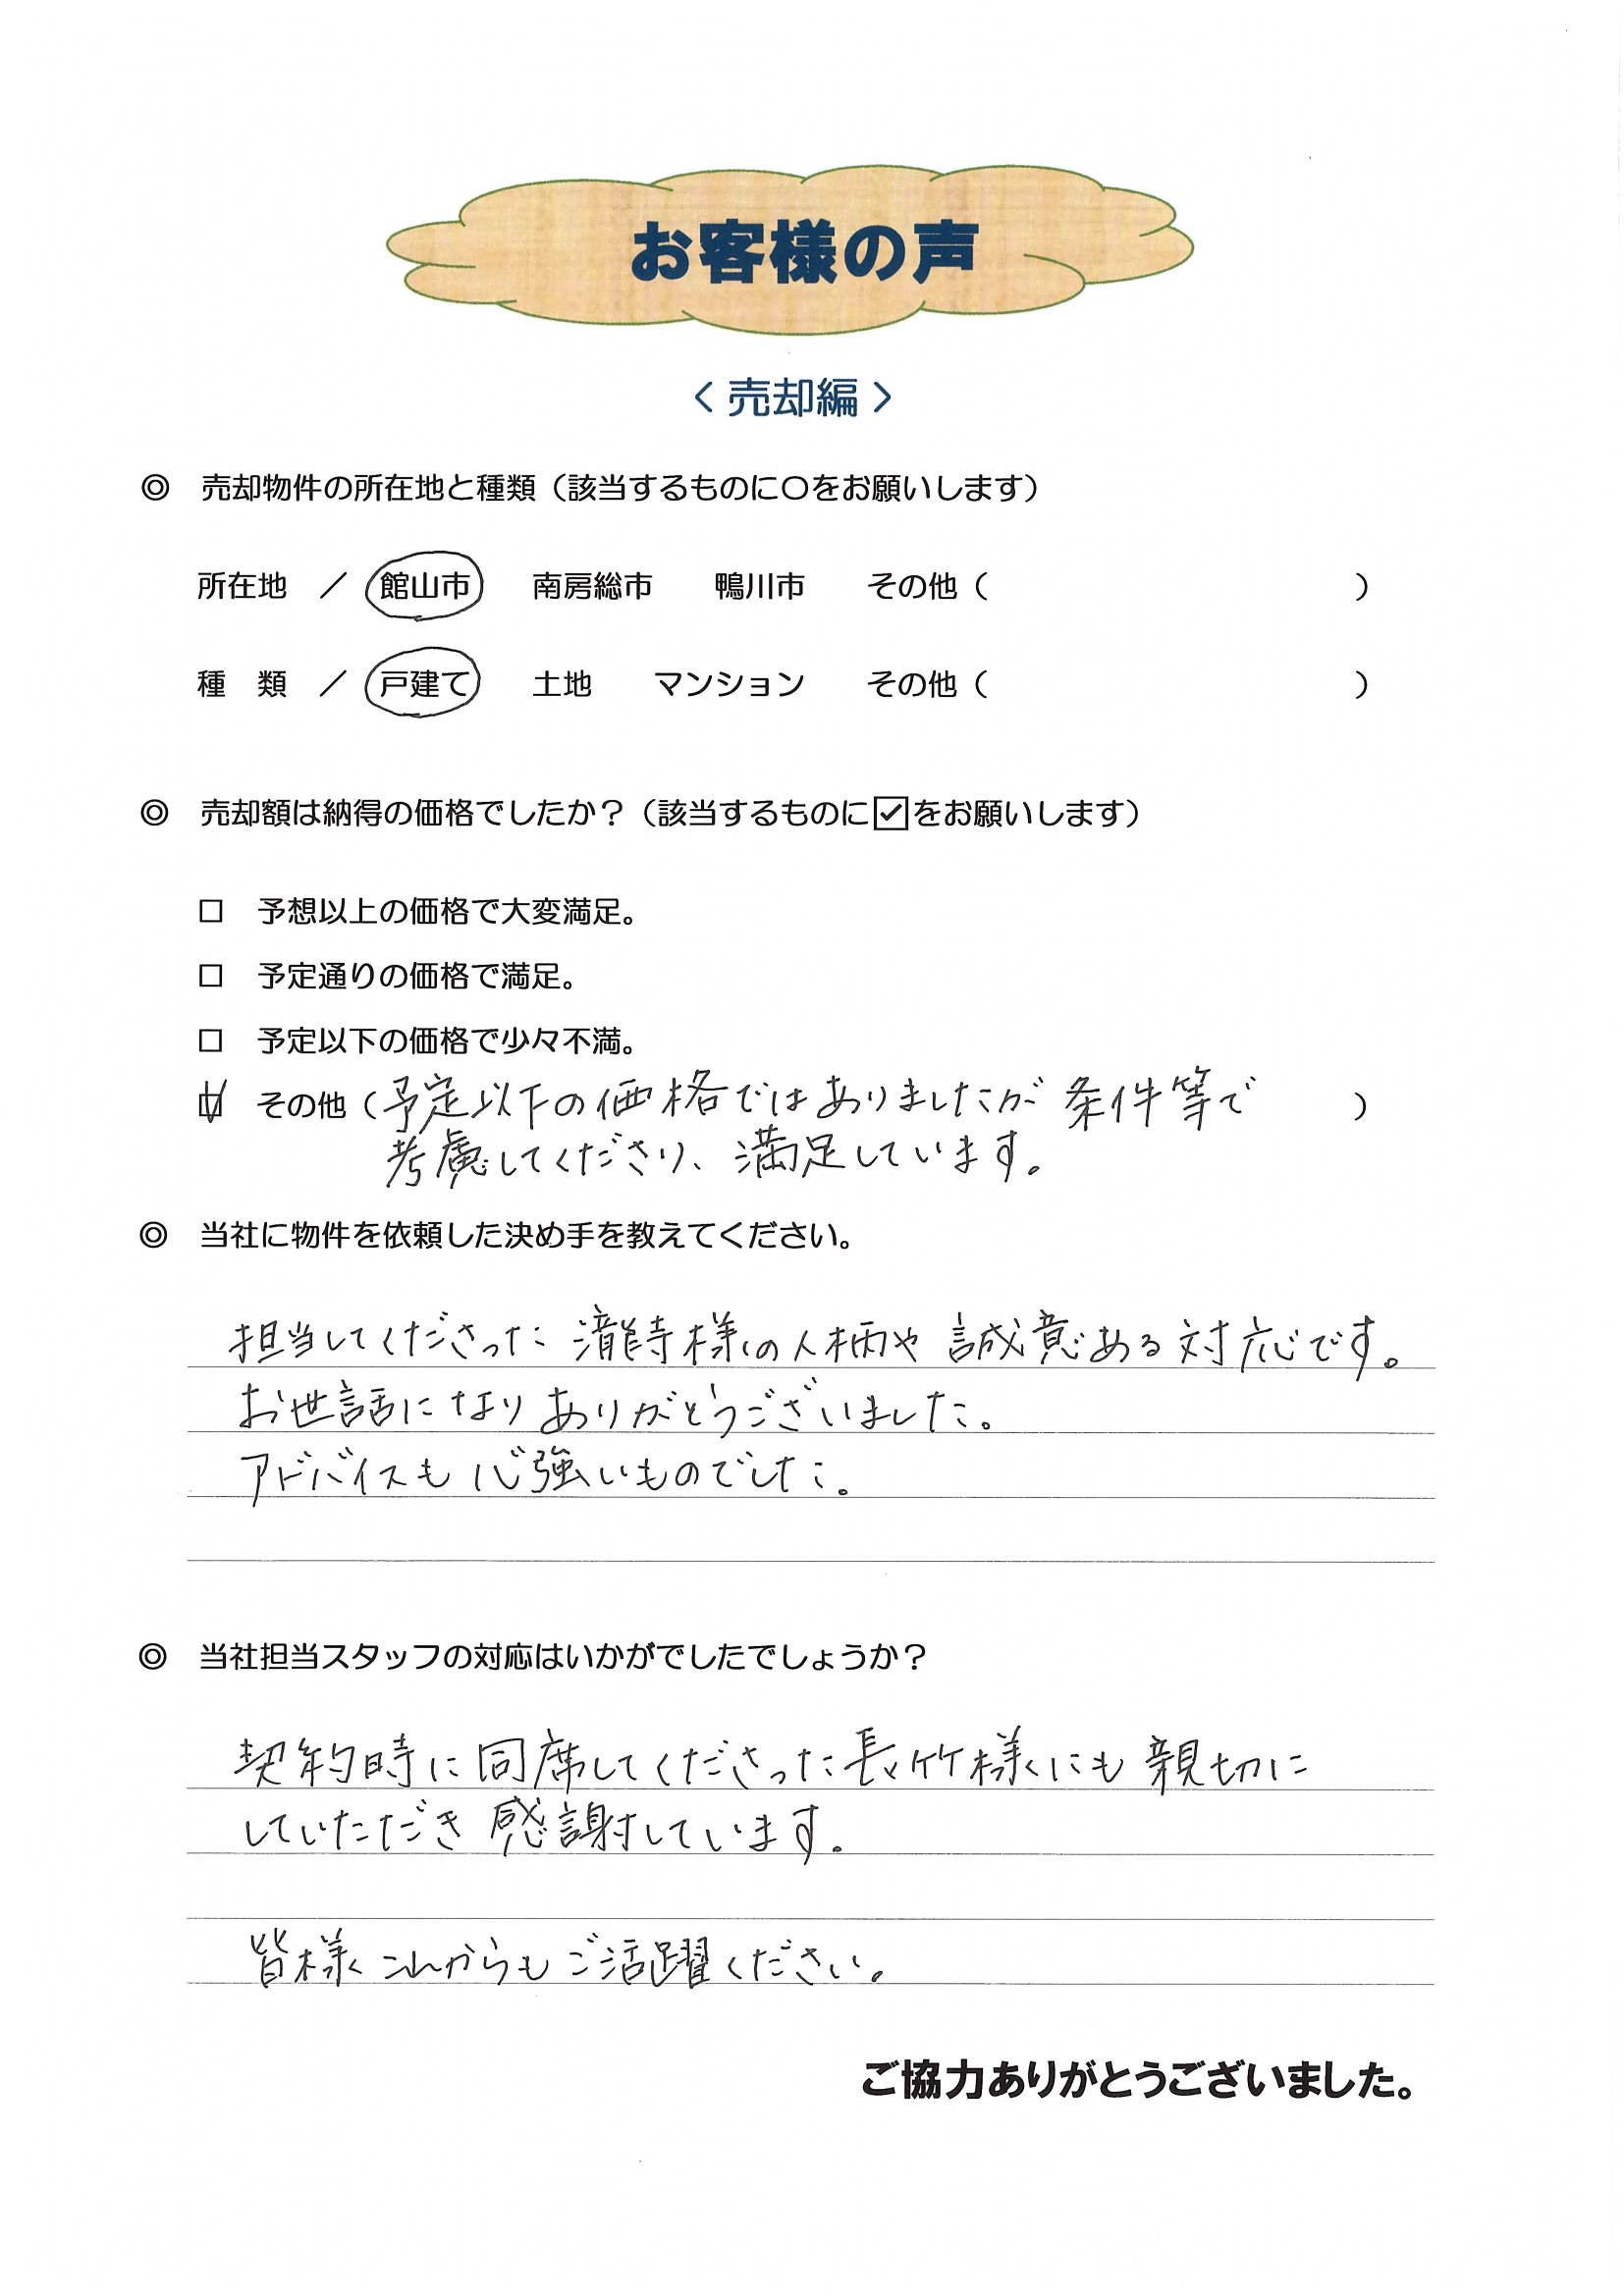 お客様の声
〈 売却編 〉
◎ 売却物件の所在地と種類（該当するものに〇をお願いします）
所在地 ／ 館山市 南房総市 鴨川市 その他（ ）
種 類 ／ 戸建て 土地 マンション その他（ ）
◎ 売却額は納得の価格でしたか？（該当するものに☑をお願いします）
□ 予想以上の価格で大変満足。
□ 予定通りの価格で満足。
□ 予定以下の価格で少々不満。
☑ その他（予定以下の価格ではありましたが 条件等で ）
考慮してくださり、満足しています。
◎ 当社に物件を依頼した決め手を教えてください。
担当してくださった 瀧寺様の人柄や 誠意ある対応です。
お世話になり ありがとうございました。
アドバイスも心強いものでした。
◎ 当社担当スタッフの対応はいかがでしたでしょうか？
契約時に同席してくださった長竹様にも親切に
していただき 感謝しています。
皆様 これからも ご活躍ください。
ご協力ありがとうございました。